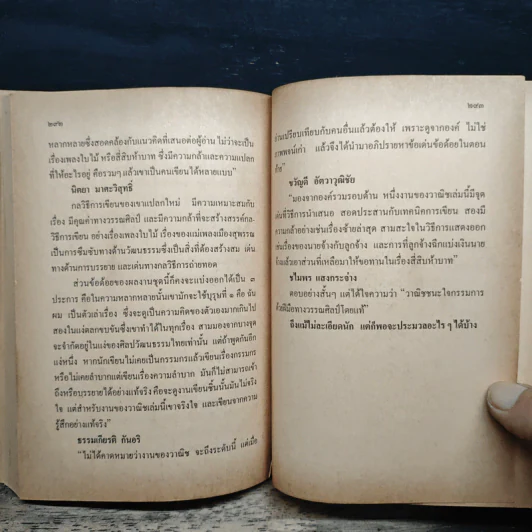 ๒๙๒
หลากหลายซึ่งสอดคล้องกับแนวคิดที่เสนอต่อผู้อ่าน ไม่ว่าจะเป็น
เรื่องเพลงใบไม้ หรือสี่สิบห้าบาท ซึ่งมีความกล้าและความแปลก
ที่ให้อะไรอยู่ คือรวมๆ แล้วเขาเป็นคนเขียนได้หลายแบบ”
นิตยา มาศะวิสุทธิ์
กลวิธีการเขียนของเขาแปลกใหม่ มีความเหมาะสมกับ
เรื่อง มีคุณค่าทางวรรณศิลป์ และมีความกล้าที่จะสร้างสรรค์กล-
วิธีการเขียน อย่างเรื่องเพลงใบไม้ เรื่องของแม่เพลงเมืองสุพรรณ
เป็นการซึมซับทางด้านวัฒนธรรมซึ่งเป็นสิ่งที่ต้องสร้างสม เด่น
ทางด้านการบรรยาย และเด่นทางกลวิธีการถ่ายทอด
ส่วนข้อด้อยของผลงานชุดนี้ก็คงจะแบ่งออกได้เป็น ๓
ประการ คือในความหลากหลายนั้นเขามักจะใช้บุรุษที่ ๑ คือ ฉัน
ผม เป็นตัวเล่าเรื่อง ซึ่งจะดูเป็นความคิดของตัวเองมากเกินไป
สองในแง่ตลกขบขันซึ่งเขาทำได้ในทุกเรื่อง สามมองจากบางจุด
จะจำกัดอยู่ในแง่ของศิลปวัฒนธรรมไทยเท่านั้น แต่ถ้าพูดกันอีก
แง่หนึ่ง หากนักเขียนไม่เคยเป็นกรรมกรแล้วเขียนเรื่องกรรมกร
หรือไม่เคยลำบากแต่เขียนเรื่องความลำบาก มันก็ไม่สามารถเข้า
ถึงหรือบรรยายได้อย่างแท้จริง คือจะดูงานเขียนชิ้นนั้นมันไม่จริง
ใจ แต่สำหรับงานของวาณิชเล่มนี้เขาจริงใจ และเขียนจากความ
รู้สึกอย่างแท้จริง”
ธรรมเกียรติ กันอริ
“ไม่ได้คาดหมายว่างานของวาณิช จะถึงระดับนี้ แต่เมื่อ
๒๙๓
อ่านเปรียบเทียบกับคนอื่นแล้วต้องให้ เพราะดูจากองค์ ไม่ใช่
ภาพพจน์เก่า แล้วจึงได้นำมาอภิปรายหาข้อเด่นข้อด้อยในตอน
ขวัญดี อัตวาวุฒิชัย
“มองจากองค์รวมรอบด้าน หนึ่งงานของวาณิชเล่มนี้มีจุด
เด่นที่วิธีการนำเสนอ สอดประสานกับเทคนิคการเขียน สองมี
ความกล้าอย่างเช่นเรื่องซ้ายล่าสุด สามสะใจในวิธีการแสดงออก
เช่นเรื่องของนายจ้างกับลูกจ้าง และการที่ลูกจ้างฉีกแบ่งเงินนาย
จ้างแล้วเอาส่วนที่เหลือมาให้ขอทานในเรื่องสี่สิบห้าบาท”
ชไมพร แสงกระจ่าง
ตอบอย่างสั้นๆ แต่ได้ใจความว่า “วาณิชชนะใจกรรมการ
ด้วยฝีมือทางวรรณศิลป์โดยแท้”
ถึงแม้ไม่ละเอียดนัก แต่ก็พอจะประมวลอะไร ๆ ได้บ้าง